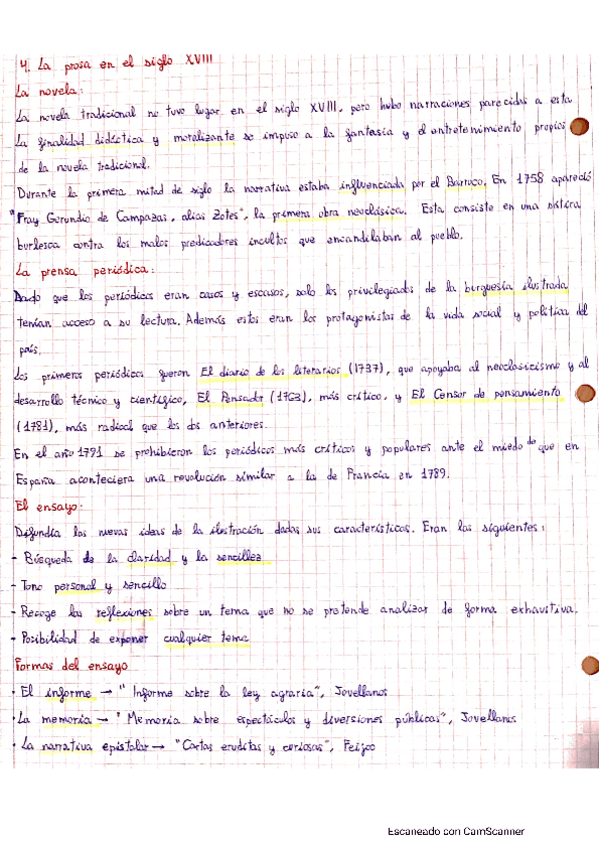 4. La prosa en el siglo XVIII
La novela:
La novela tradicional no tuvo lugar en el siglo XVIII, pero hubo narraciones parecidas a esta
La finalidad didáctica y moralizante se impuso a la fantasía y el entretenimiento propios
de la novela tradicional.
Durante la primera mitad de siglo la narrativa estaba influenciada por el Barroco. En 1758 apareció
"Fray Gerundio de Campazas, alias Zotes", la primera obra neoclásica. Esta consiste en una sátira
burlesca contra los malos predicadores incultos que encandilaban al pueblo.
La prensa periódica:
Dado que los periódicos eran caros y escasos, solo los privilegiados de la burguesía ilustrada
tenían acceso a su lectura. Además estos eran los protagonistas de la vida social y política del
país.
Los primeros periódicos fueron El diario de los literarios (1737), que apoyaba al neoclasicismo y al
desarrollo técnico y científico, El Pensador (1763), más crítico, y El Censor de pensamiento
(1781), más radical que los dos anteriores.
En el año 1791 se prohibieron los periódicos más críticos y populares ante el miedo de que en
España aconteciera una revolución similar a la de Francia en 1789.
El ensayo:
Difundía las nuevas ideas de la ilustración dadas sus características. Eran las siguientes:
- Búsqueda de la claridad y la sencillez
- Tono personal y sencillo
- Recoge las reflexiones sobre un tema que no se pretende analizar de forma exhaustiva.
- Posibilidad de exponer cualquier tema
Formas del ensayo
· El informe → "Informe sobre la ley agraria", Jovellanos
· La memoria → "Memoria sobre espectáculos y diversiones públicas", Jovellanos
· La narrativa epistolar → "Cartas eruditas y curiosas", Feijoo
Escaneado con CamScanner